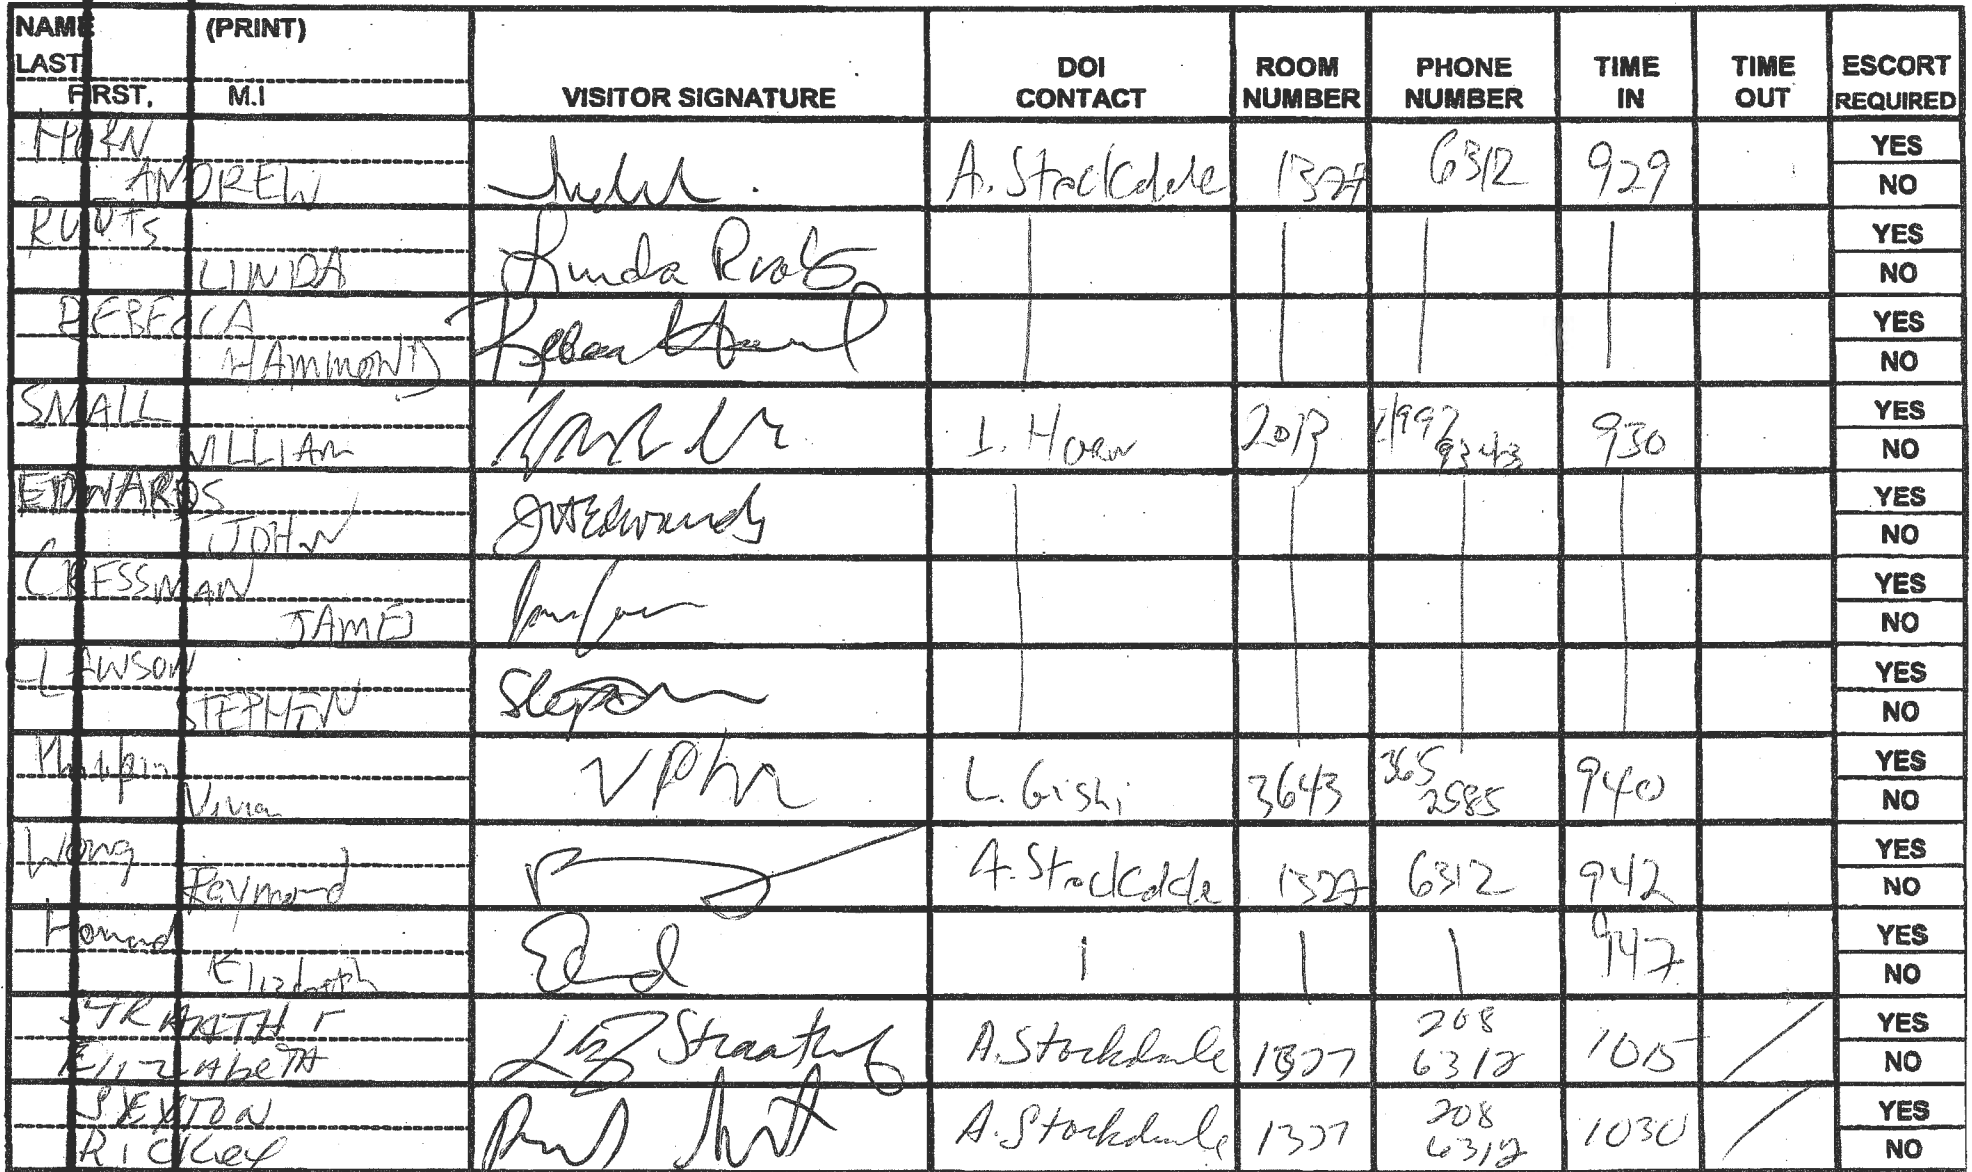 NAME (PRINT)
LAST
FIRST, M.I
VISITOR SIGNATURE
DOI CONTACT
ROOM NUMBER
PHONE NUMBER
TIME IN
TIME OUT
ESCORT REQUIRED
HORN
ANDREW
A. Stockdale 1327 6312 929
YES
NO
ROOTS
LINDA
Linda Roots
YES
NO
REBECCA
HAMMOND
YES
NO
SMALL
WILLIAM
I. Horn 930
YES
NO
EDWARDS
JOHN
JWEdwards
YES
NO
CRESSMAN
JAMES
YES
NO
LAWSON
STEPHEN
YES
NO
Vivian
L. Gishi 3643 365 2585 940
YES
NO
Wong
Raymond
A. Stockdale 1327 6312 942
YES
NO
Howard
Elizabeth
947
YES
NO
Elizabeth
Liz
A. Stockdale 1327 208 6312 1015
YES
NO
SEXTON
Rickey
A. Stockdale 1327 208 6312 1030
YES
NO